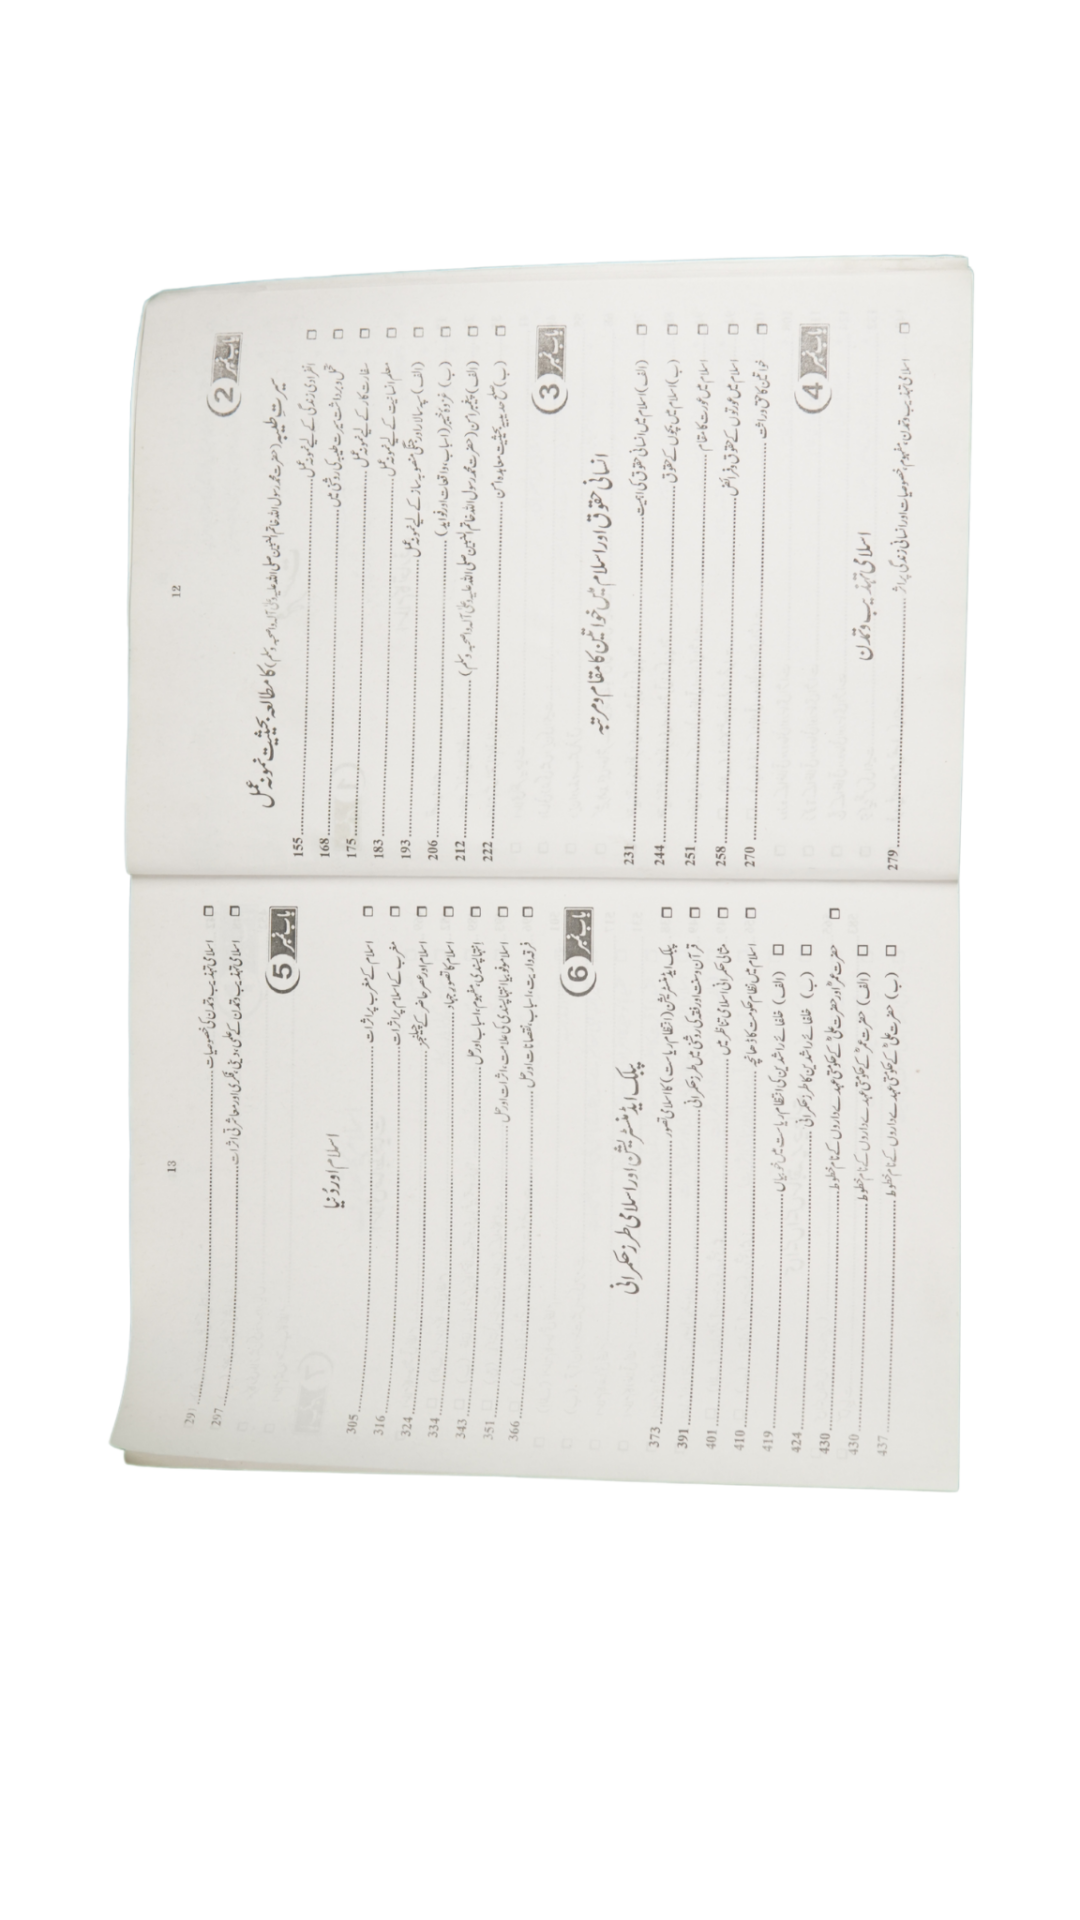 12
باب نمبر 2
سیرت طیبہ (حضرت محمد رسول اللہ خاتم النبیین صلی اللہ علیہ وعلیٰ آلہ واصحبہ وسلم) کا مطالعہ بحیثیت نمونہ عمل
□ انفرادی زندگی کے لیے نمونہ عمل ........ 155
□ تحمل و برداشت سیرت طیبہ کی روشنی میں ........ 168
□ سفارت کار کے لیے نمونہ عمل ........ 175
□ معلم انسانیت کے لیے نمونہ عمل ........ 183
□ (الف) سپہ سالار اور جنگی منصوبہ ساز کے لیے نمونہ عمل ........ 193
□ (ب) غزوہ خیبر (اسباب، واقعات اور فوائد) ........ 206
□ (الف) پیغمبر امن (حضرت محمد رسول اللہ خاتم النبیین صلی اللہ علیہ وعلیٰ آلہ واصحبہ وسلم) ........ 212
□ (ب) صلح حدیبیہ بحیثیت معاہدہ امن ........ 222
باب نمبر 3
انسانی حقوق اور اسلام میں خواتین کا مقام و مرتبہ
□ (الف) اسلام میں انسانی حقوق کی اہمیت ........ 231
□ (ب) اسلام میں بچوں کے حقوق ........ 244
□ اسلام میں عورت کا مقام ........ 251
□ اسلام میں عورتوں کے حقوق و فرائض ........ 258
□ خواتین کا حق وراثت ........ 270
باب نمبر 4
اسلامی تہذیب و تمدن
□ اسلامی تہذیب و تمدن، مفہوم، خصوصیات اور انسانی زندگی پر اثر ........ 279
13
□ اسلامی تہذیب و تمدن کی خصوصیات ........ 291
□ اسلامی تہذیب و تمدن کے علمی، دینی، فکری اور معاشرتی اثرات ........ 297
باب نمبر 5
اسلام اور دُنیا
□ اسلام کے مغرب پر اثرات ........ 305
□ مغرب کے اسلام پر اثرات ........ 316
□ اسلام اور عصر حاضر کے چیلنجز ........ 324
□ اسلام کا تصور جہاد ........ 334
□ انتہا پسندی، مفہوم، اسباب اور حل ........ 343
□ اسلاموفوبیا انتہا پسندی کی علامت، اثرات اور حل ........ 351
□ فرقہ واریت، اسباب، نقصانات اور حل ........ 366
باب نمبر 6
پبلک ایڈمنسٹریشن اور اسلامی طرز حکمرانی
□ پبلک ایڈمنسٹریشن (انتظام ریاست) کا اسلامی تصور ........ 373
□ قرآن و سنت اور فقہ کی روشنی میں طرز حکمرانی ........ 391
□ مثالی حکمرانی اسلامی تناظر میں ........ 401
□ اسلام میں نظام حکومت کا ڈھانچہ ........ 410
□ (الف) خلفائے راشدین کی انتظام ریاست میں خوبیاں ........ 419
□ (ب) خلفائے راشدین کا طرز حکمرانی ........ 424
□ حضرت عمرؓ اور حضرت علیؓ کے حکومتی عہدے داروں کے نام خطوط ........ 430
□ (الف) حضرت عمرؓ کے حکومتی عہدے داروں کے نام خطوط ........ 430
□ (ب) حضرت علیؓ کے حکومتی عہدے داروں کے نام خطوط ........ 437